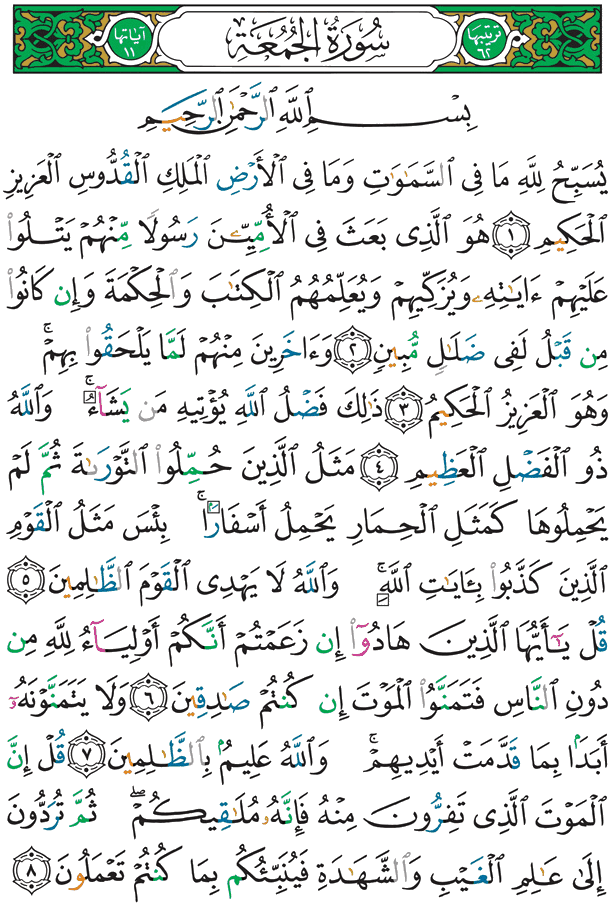 تَرْتِيبُهَا ٦٢ سُورَةُ الْجُمُعَةِ آيَاتُهَا ١١
بِسْمِ ٱللَّهِ ٱلرَّحْمَٰنِ ٱلرَّحِيمِ
يُسَبِّحُ لِلَّهِ مَا فِى ٱلسَّمَٰوَٰتِ وَمَا فِى ٱلْأَرْضِ ٱلْمَلِكِ ٱلْقُدُّوسِ ٱلْعَزِيزِ
ٱلْحَكِيمِ ١ هُوَ ٱلَّذِى بَعَثَ فِى ٱلْأُمِّيِّۦنَ رَسُولًا مِّنْهُمْ يَتْلُوا۟
عَلَيْهِمْ ءَايَٰتِهِۦ وَيُزَكِّيهِمْ وَيُعَلِّمُهُمُ ٱلْكِتَٰبَ وَٱلْحِكْمَةَ وَإِن كَانُوا۟
مِن قَبْلُ لَفِى ضَلَٰلٍ مُّبِينٍ ٢ وَءَاخَرِينَ مِنْهُمْ لَمَّا يَلْحَقُوا۟ بِهِمْ ۚ
وَهُوَ ٱلْعَزِيزُ ٱلْحَكِيمُ ٣ ذَٰلِكَ فَضْلُ ٱللَّهِ يُؤْتِيهِ مَن يَشَآءُ ۚ وَٱللَّهُ
ذُو ٱلْفَضْلِ ٱلْعَظِيمِ ٤ مَثَلُ ٱلَّذِينَ حُمِّلُوا۟ ٱلتَّوْرَىٰةَ ثُمَّ لَمْ
يَحْمِلُوهَا كَمَثَلِ ٱلْحِمَارِ يَحْمِلُ أَسْفَارًۢا ۚ بِئْسَ مَثَلُ ٱلْقَوْمِ
ٱلَّذِينَ كَذَّبُوا۟ بِـَٔايَٰتِ ٱللَّهِ ۚ وَٱللَّهُ لَا يَهْدِى ٱلْقَوْمَ ٱلظَّٰلِمِينَ ٥
قُلْ يَٰٓأَيُّهَا ٱلَّذِينَ هَادُوٓا۟ إِن زَعَمْتُمْ أَنَّكُمْ أَوْلِيَآءُ لِلَّهِ مِن
دُونِ ٱلنَّاسِ فَتَمَنَّوُا۟ ٱلْمَوْتَ إِن كُنتُمْ صَٰدِقِينَ ٦ وَلَا يَتَمَنَّوْنَهُۥٓ
أَبَدًۢا بِمَا قَدَّمَتْ أَيْدِيهِمْ ۚ وَٱللَّهُ عَلِيمٌۢ بِٱلظَّٰلِمِينَ ٧ قُلْ إِنَّ
ٱلْمَوْتَ ٱلَّذِى تَفِرُّونَ مِنْهُ فَإِنَّهُۥ مُلَٰقِيكُمْ ۖ ثُمَّ تُرَدُّونَ
إِلَىٰ عَٰلِمِ ٱلْغَيْبِ وَٱلشَّهَٰدَةِ فَيُنَبِّئُكُم بِمَا كُنتُمْ تَعْمَلُونَ ٨